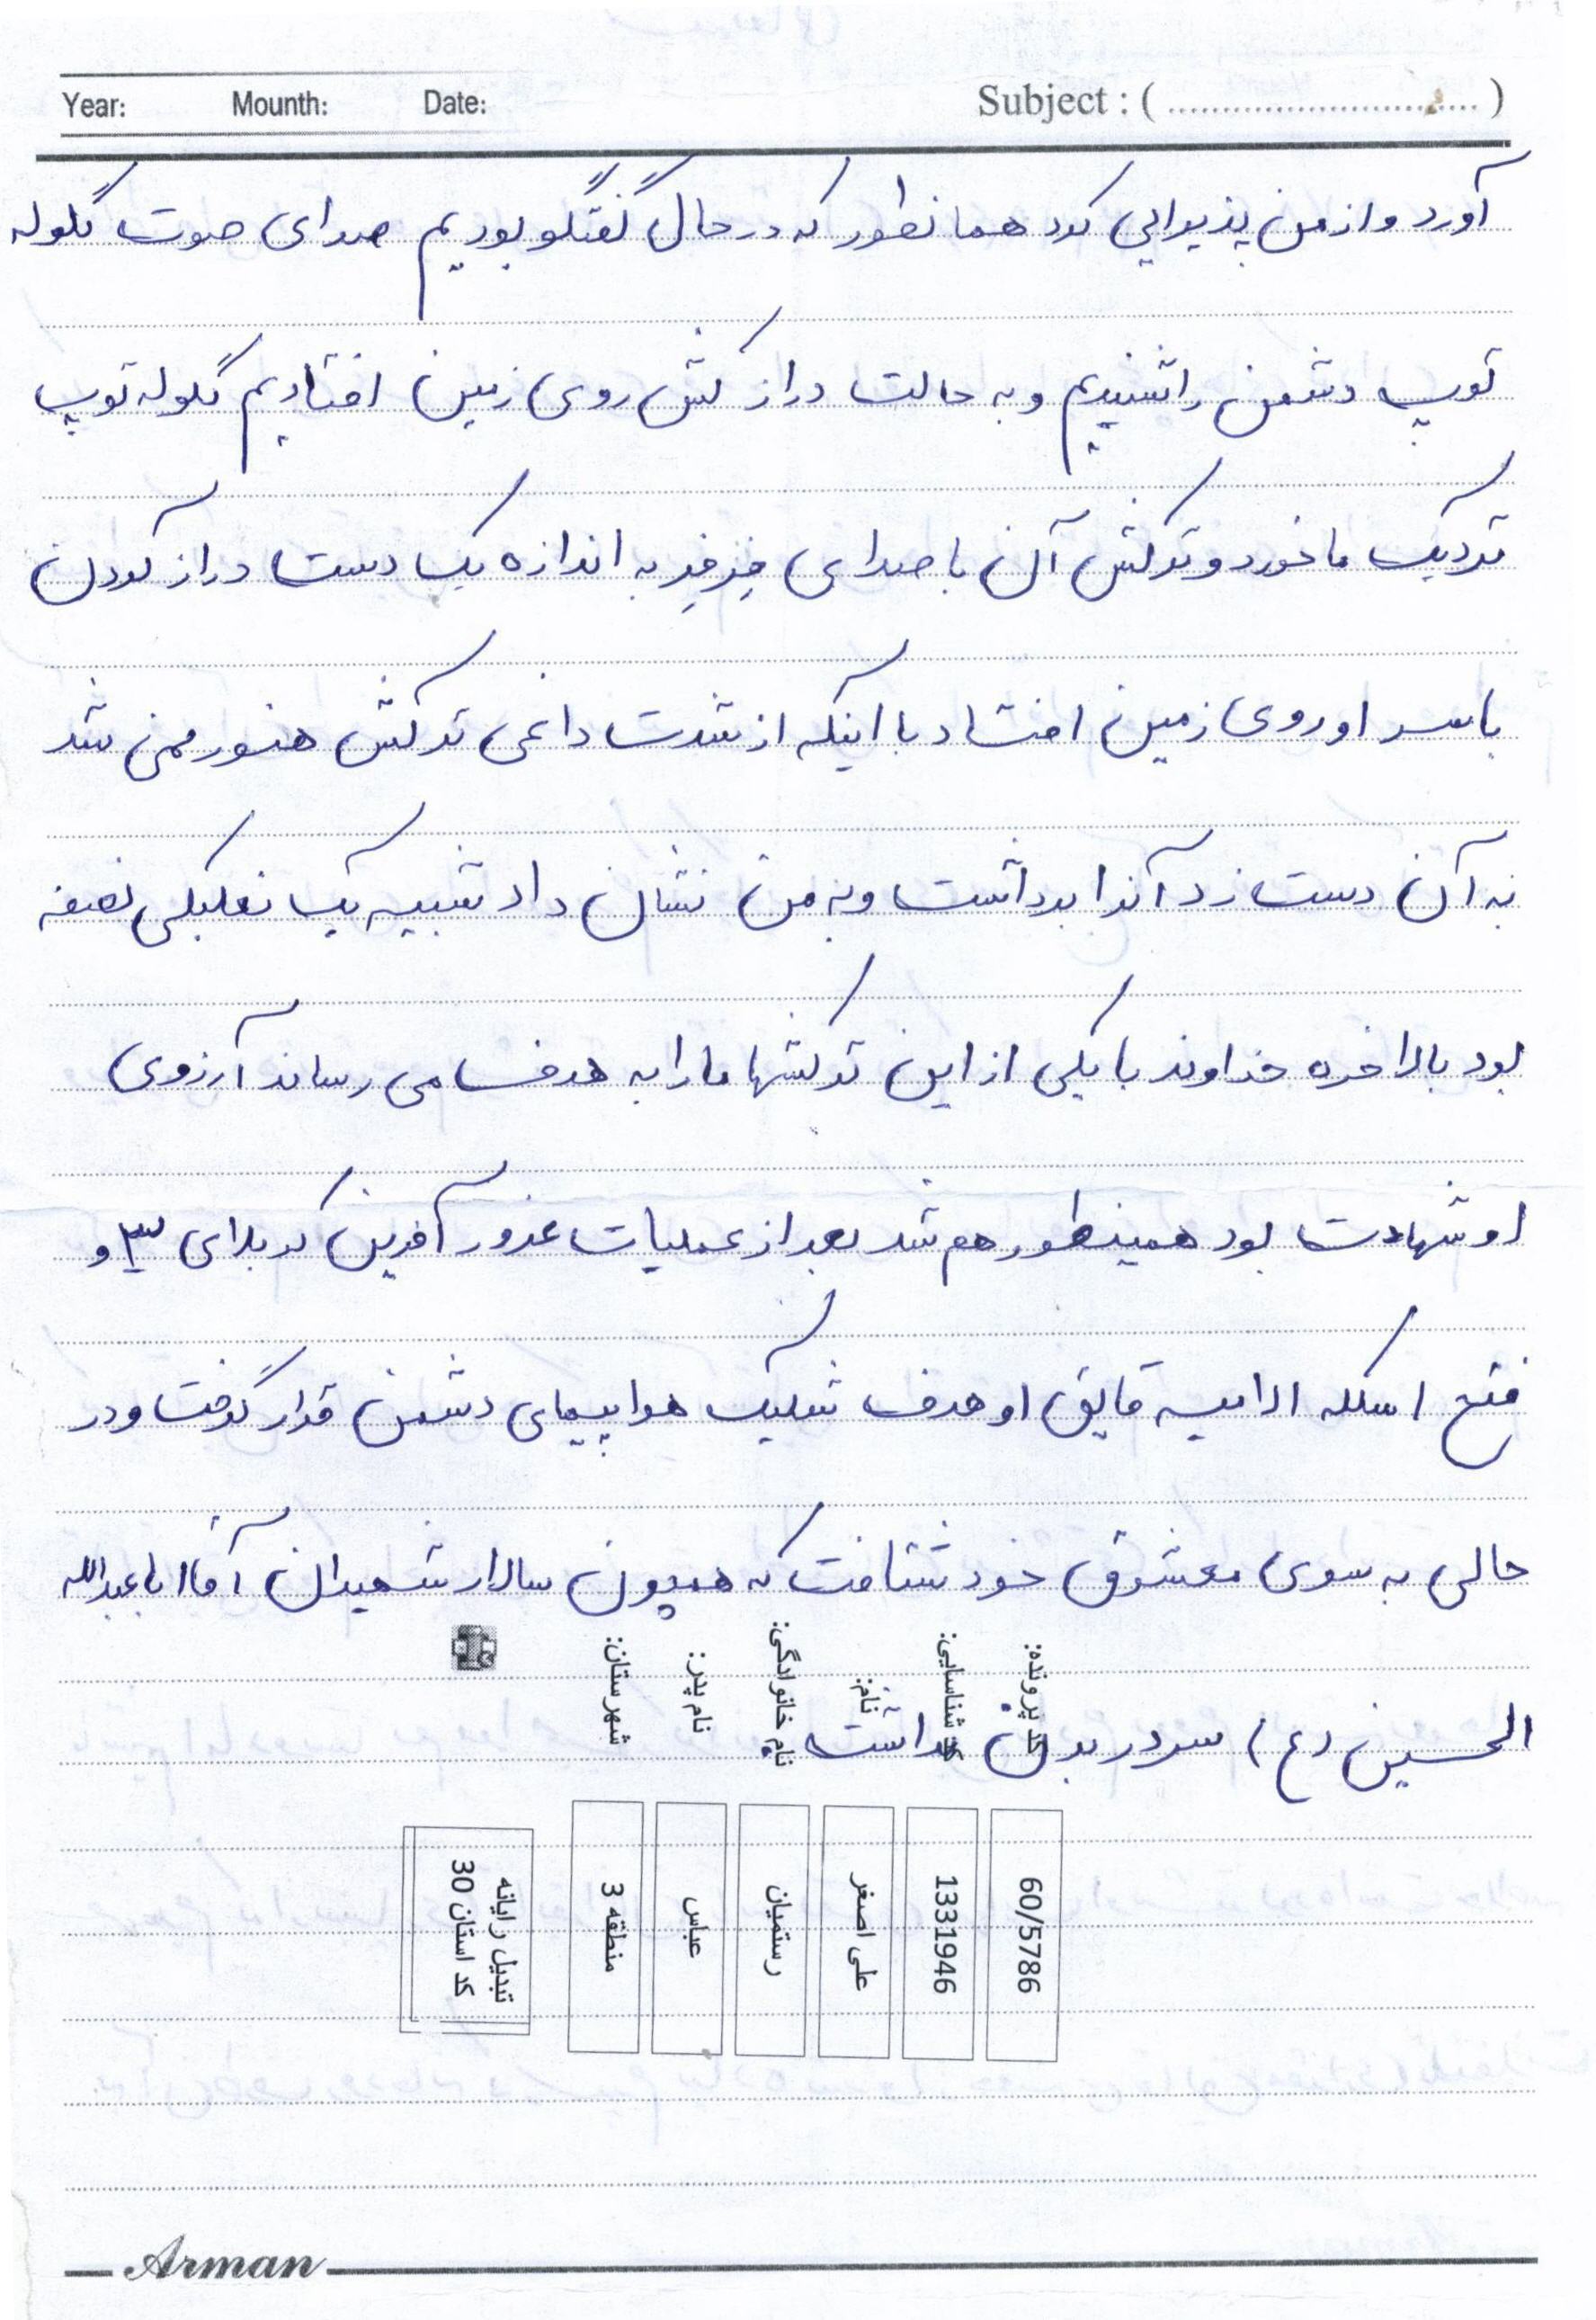 Year: Mounth: Date: Subject : ( .............................. )
آورد و از من پذیرایی کرد همانطور که در حال گفتگو بودیم صدای صوت گلوله
توپ دشمن را شنیدیم و به حالت دراز کش روی زمین افتادیم گلوله توپ
نزدیک ما خورد و ترکش آن با صدای فِرفِر به اندازه یک دست دراز کردن
با سر او روی زمین افتاد با اینکه از شدت داغی ترکش هنوز نمی شد
به آن دست زد آنرا برداشت و به من نشان داد شبیه یک نعلبکی نصفه
بود بالاخره خداوند با یکی از این ترکشها ما را به هدف می رساند آرزوی
او شهادت بود همینطور هم شد بعد از عملیات غرور آفرین کربلای ۳ و
فتح اسکله الامیه قایق او هدف شلیک هواپیمای دشمن قرار گرفت و در
حالی به سوی معشوق خود شتافت که همچون سالار شهیدان آقا ابا عبدالله
الحسین (ع) سر در بدن نداشت
کد پرونده: 60/5786
کد شناسایی: 1331946
نام: علی اصغر
نام خانوادگی: رستمیان
نام پدر: عباس
شهرستان: منطقه 3
تبدیل رایانه
کد استان 30
Arman